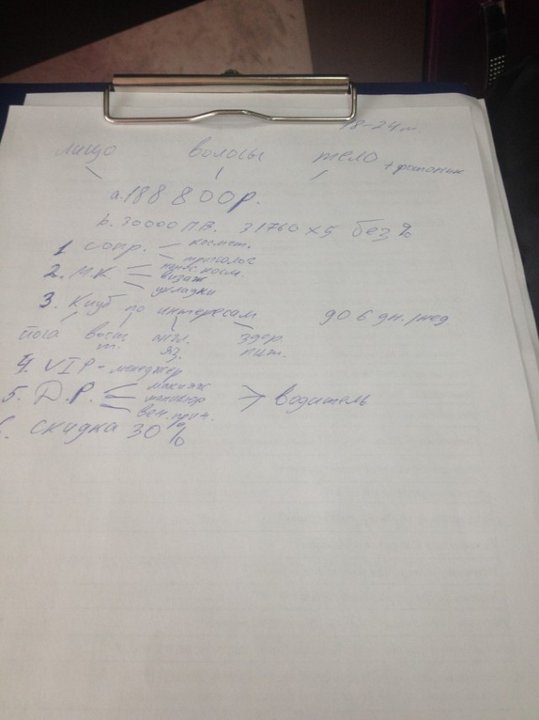 18-24 м
лицо волосы тело + фототип
a. 188 800 р.
b. 30000 П.В. 31760 x 5 без %
1 сопр. - космет.
- трихолог
2. М.К - визаж
- укладки
3. Клуб по интересам до 6 дн./нед
йога вост. т. англ. яз. здор. пит.
4. VIP - менеджер
5. Д.Р. - макияж > водитель
- маникюр
- веч. прич.
6. скидка 30%